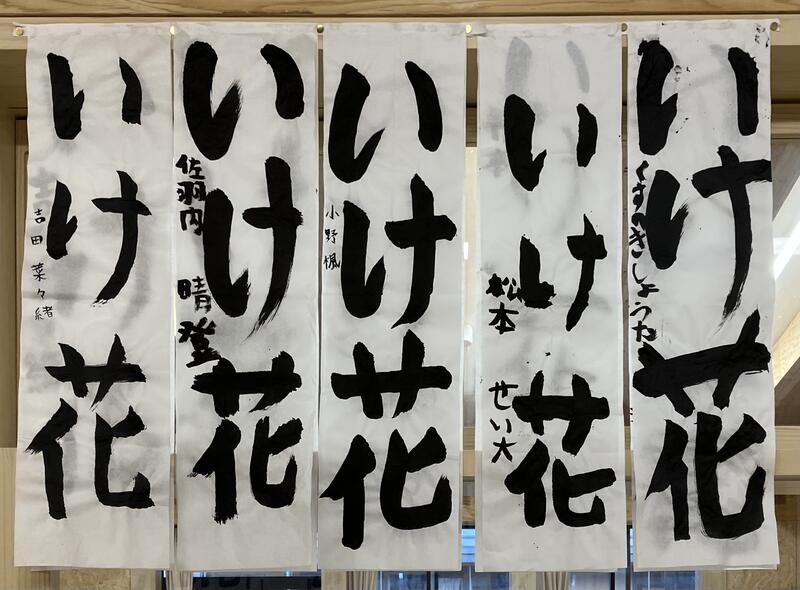 いけ花
くすのきしょうた
いけ花
松本 せい大
いけ花
小野楓
いけ花
佐羽内 晴登
いけ花
吉田 菜々緒